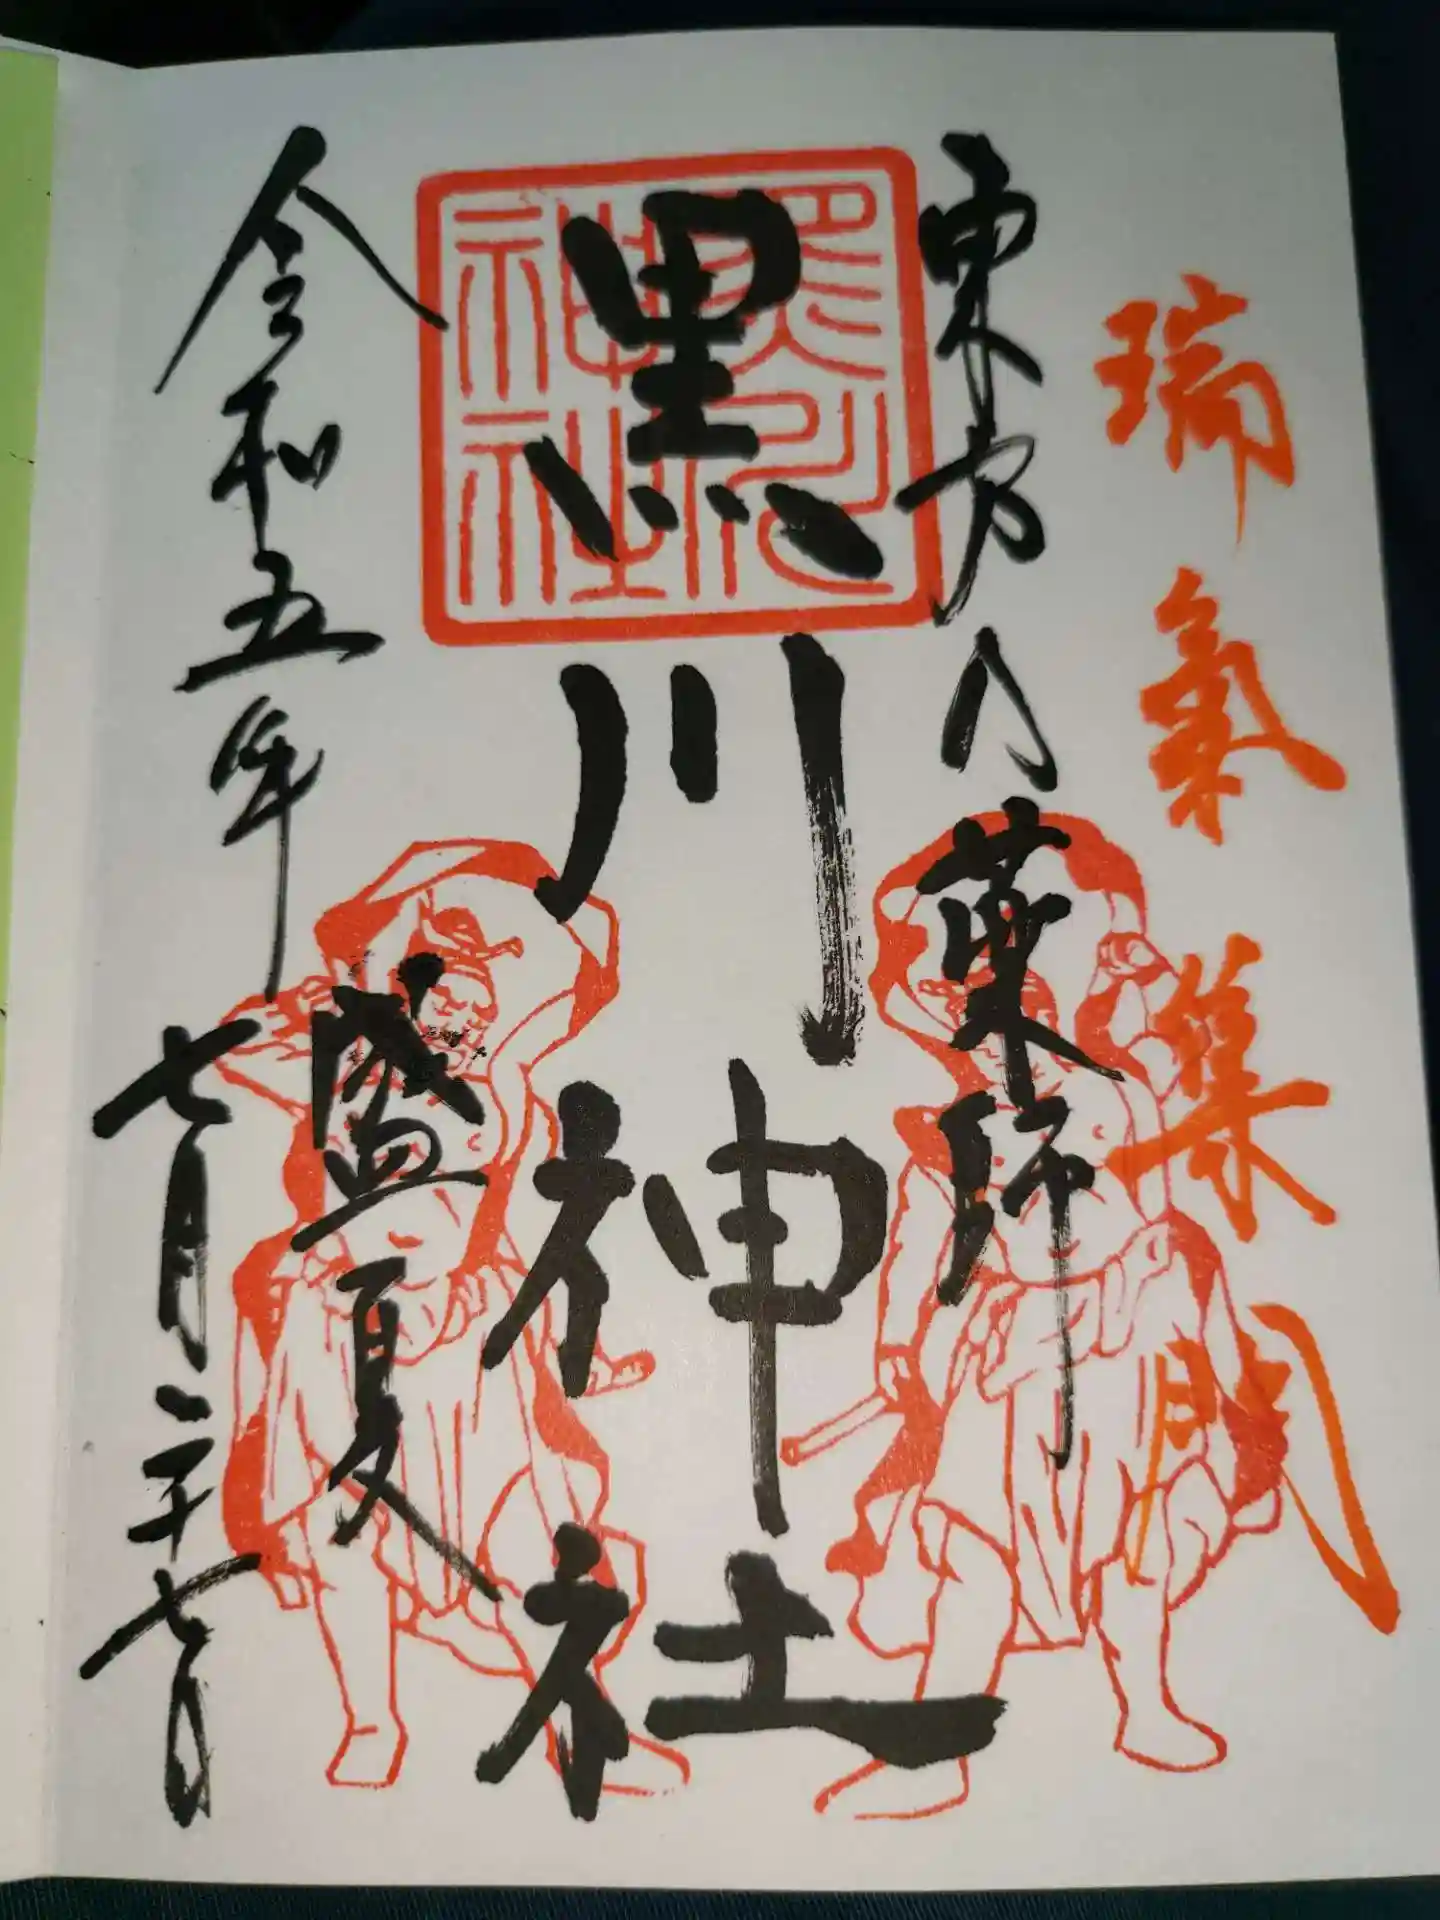 瑞氣集門
東方乃薬師
黒川神社
盛夏
令和五年七月二十七日